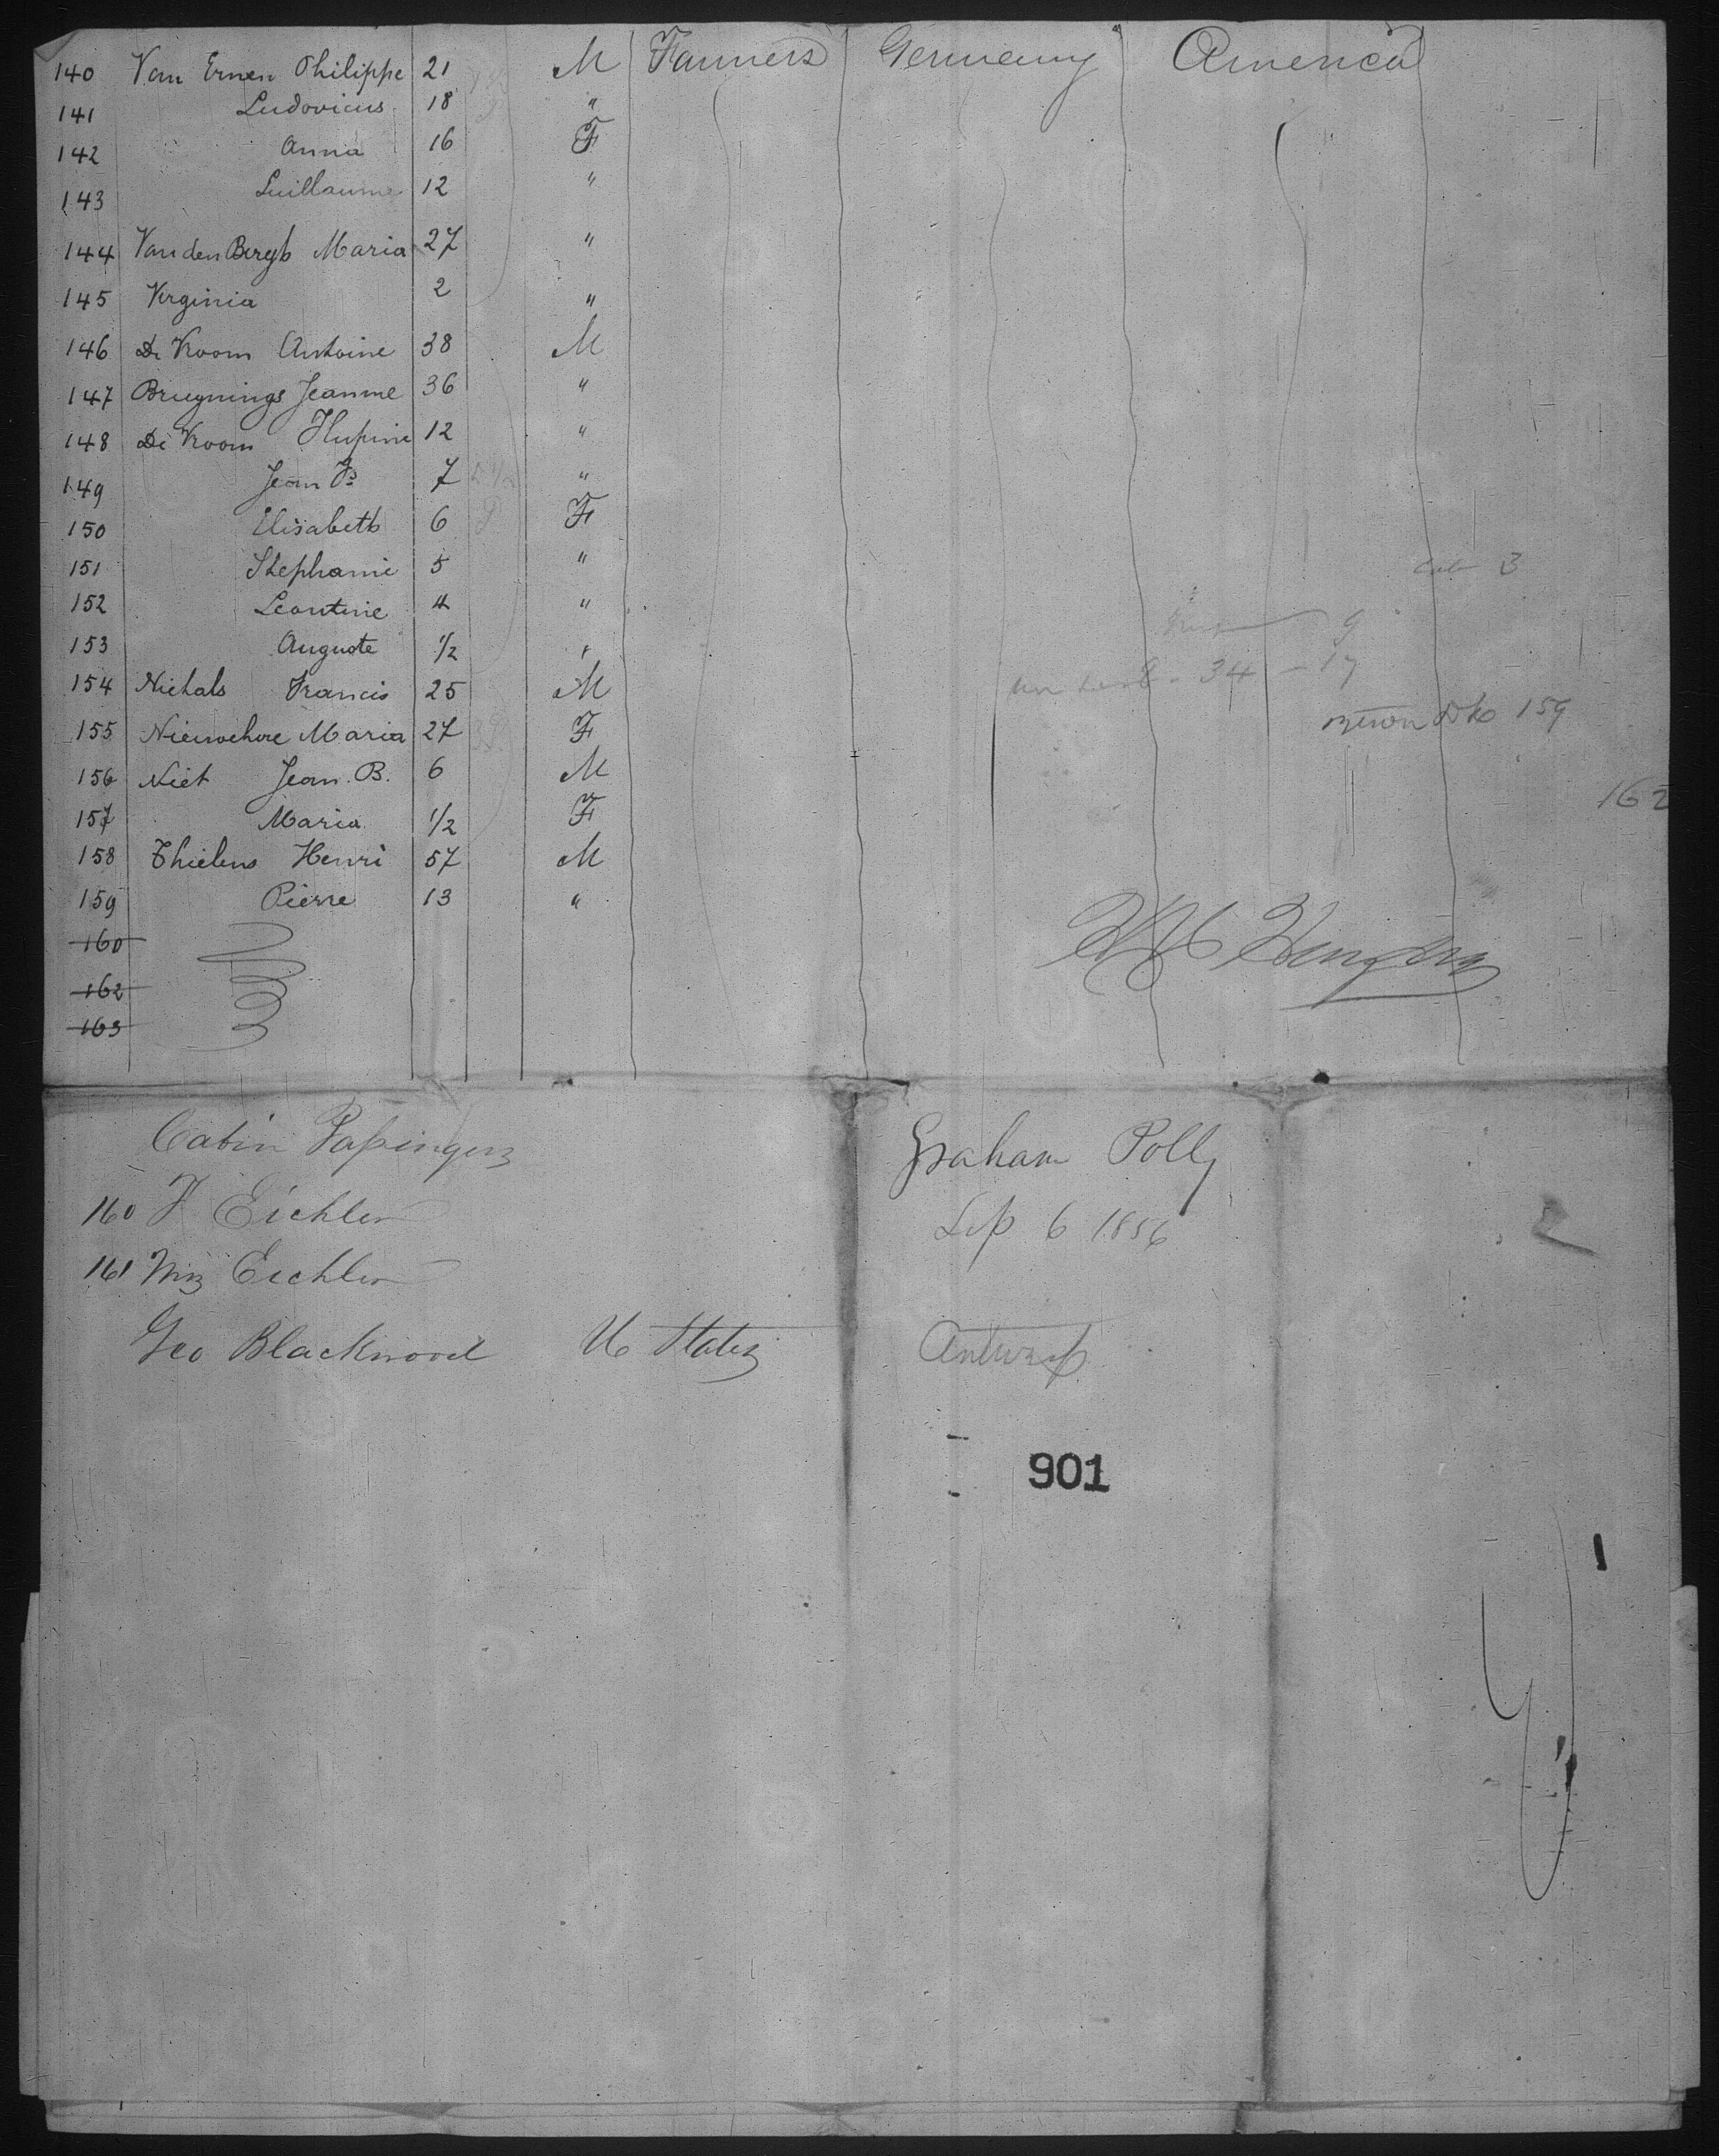 140 Van Ernen Philippe 21 M Farmers Germany America
141 Ludovicus 18 "
142 Anna 16 F
143 Guillaume 12 "
144 Van den Bergh Maria 27 "
145 Virginia 2 "
146 De Kroom Antoine 38 M
147 Bruynings Jeanne 36 "
148 De Kroom 12 "
149 Jean Fs 7 "
150 Elisabeth 6 F
151 Stephanie 5 "
152 Leontine 4 "
153 Auguste 1/2 "
154 Nichals Francis 25 M
155 Maria 27 F
156 Niet Jean. B. 6 M
157 Maria 1/2 F
158 Thielens Henri 57 M
159 Pierre 13 "
160
162
163
3
9
34 - 17
159
162
Cabin Passengers
160 F Eichler
161 Mrs Eichler
Geo Blackwood U States
Graham Polly
Sep 6 1856
Antwerp
2
901